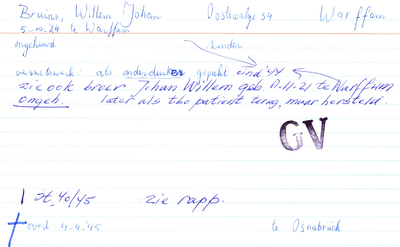 Bruins, Willem Johan Oostewalge 34 Warffum
5-10-24 te Warffum
ongehuwd zonder
verzetswerk: als onderduiker gepakt eind '44
zie ook broer Johan Willem geb. 11.11.21 te Warffum
ongeh. later als tbc patient terug, maar hersteld.
GV
st. 40/45 zie rapp.
overl. 4-4-'45 te Osnabrück